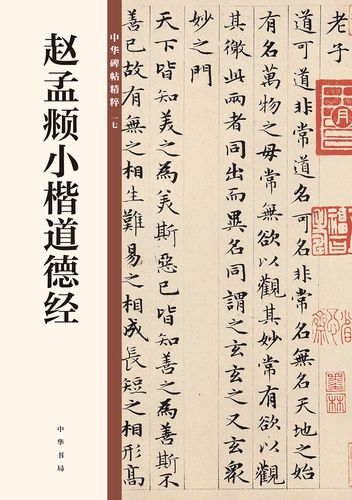 赵孟𫖯小楷道德经
中华书局
中华碑帖精粹 一七
老子
道可道非常道名可名非常名無名天地之始
有名萬物之母常無欲以觀其妙常有欲以觀
其徼此兩者同出而異名同謂之玄玄之又玄眾
妙之門
天下皆知美之為美斯惡已皆知善之為善斯不
善已故有無之相生難易之相成長短之相形高